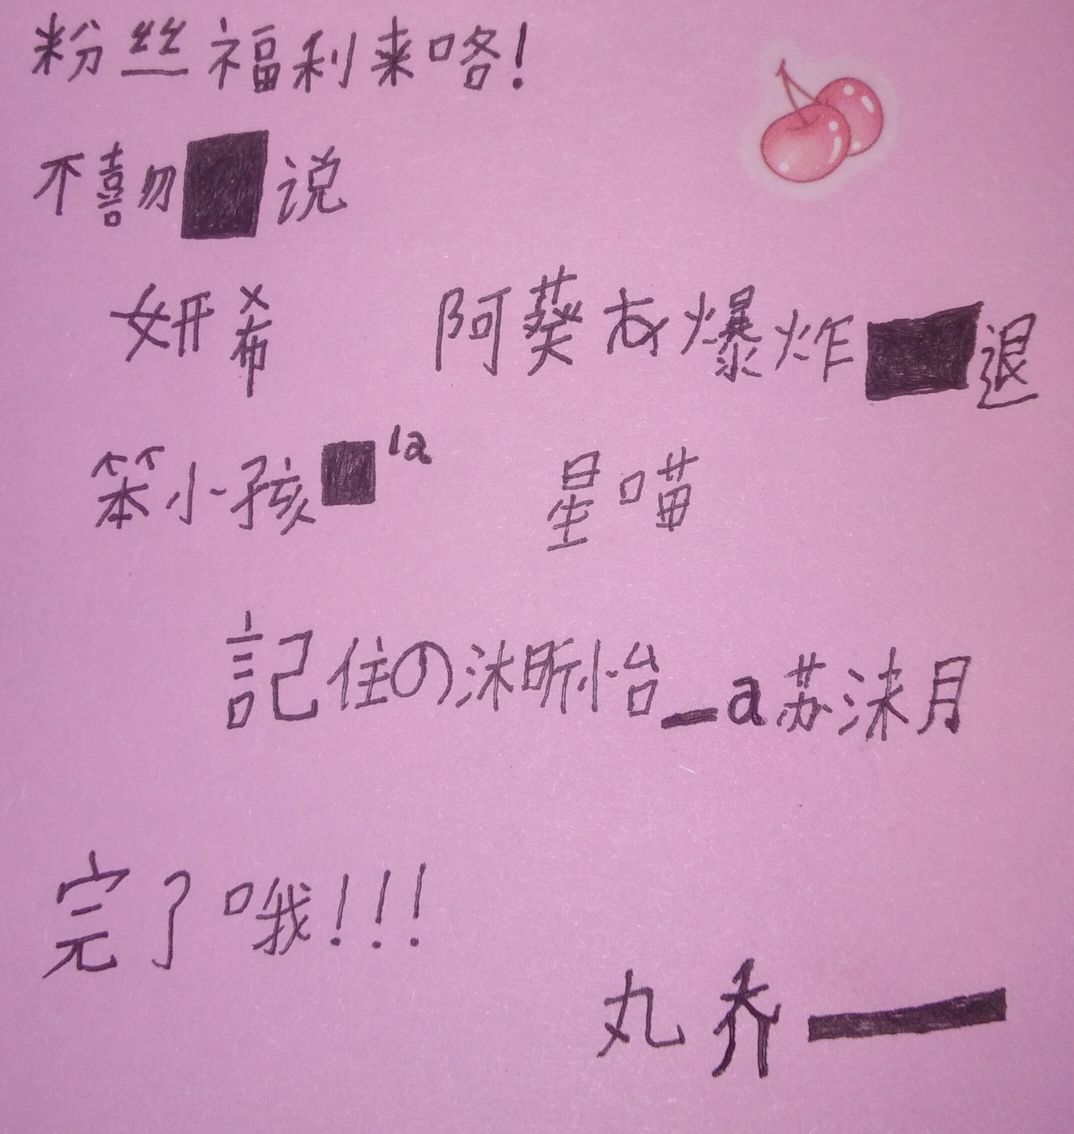 粉丝福利来咯!
不喜勿 说
妍希 阿葵 爆炸 退
笨小孩 la
星喵
記住の沐昕怡_a苏沫月
完了哦!!!
丸乔